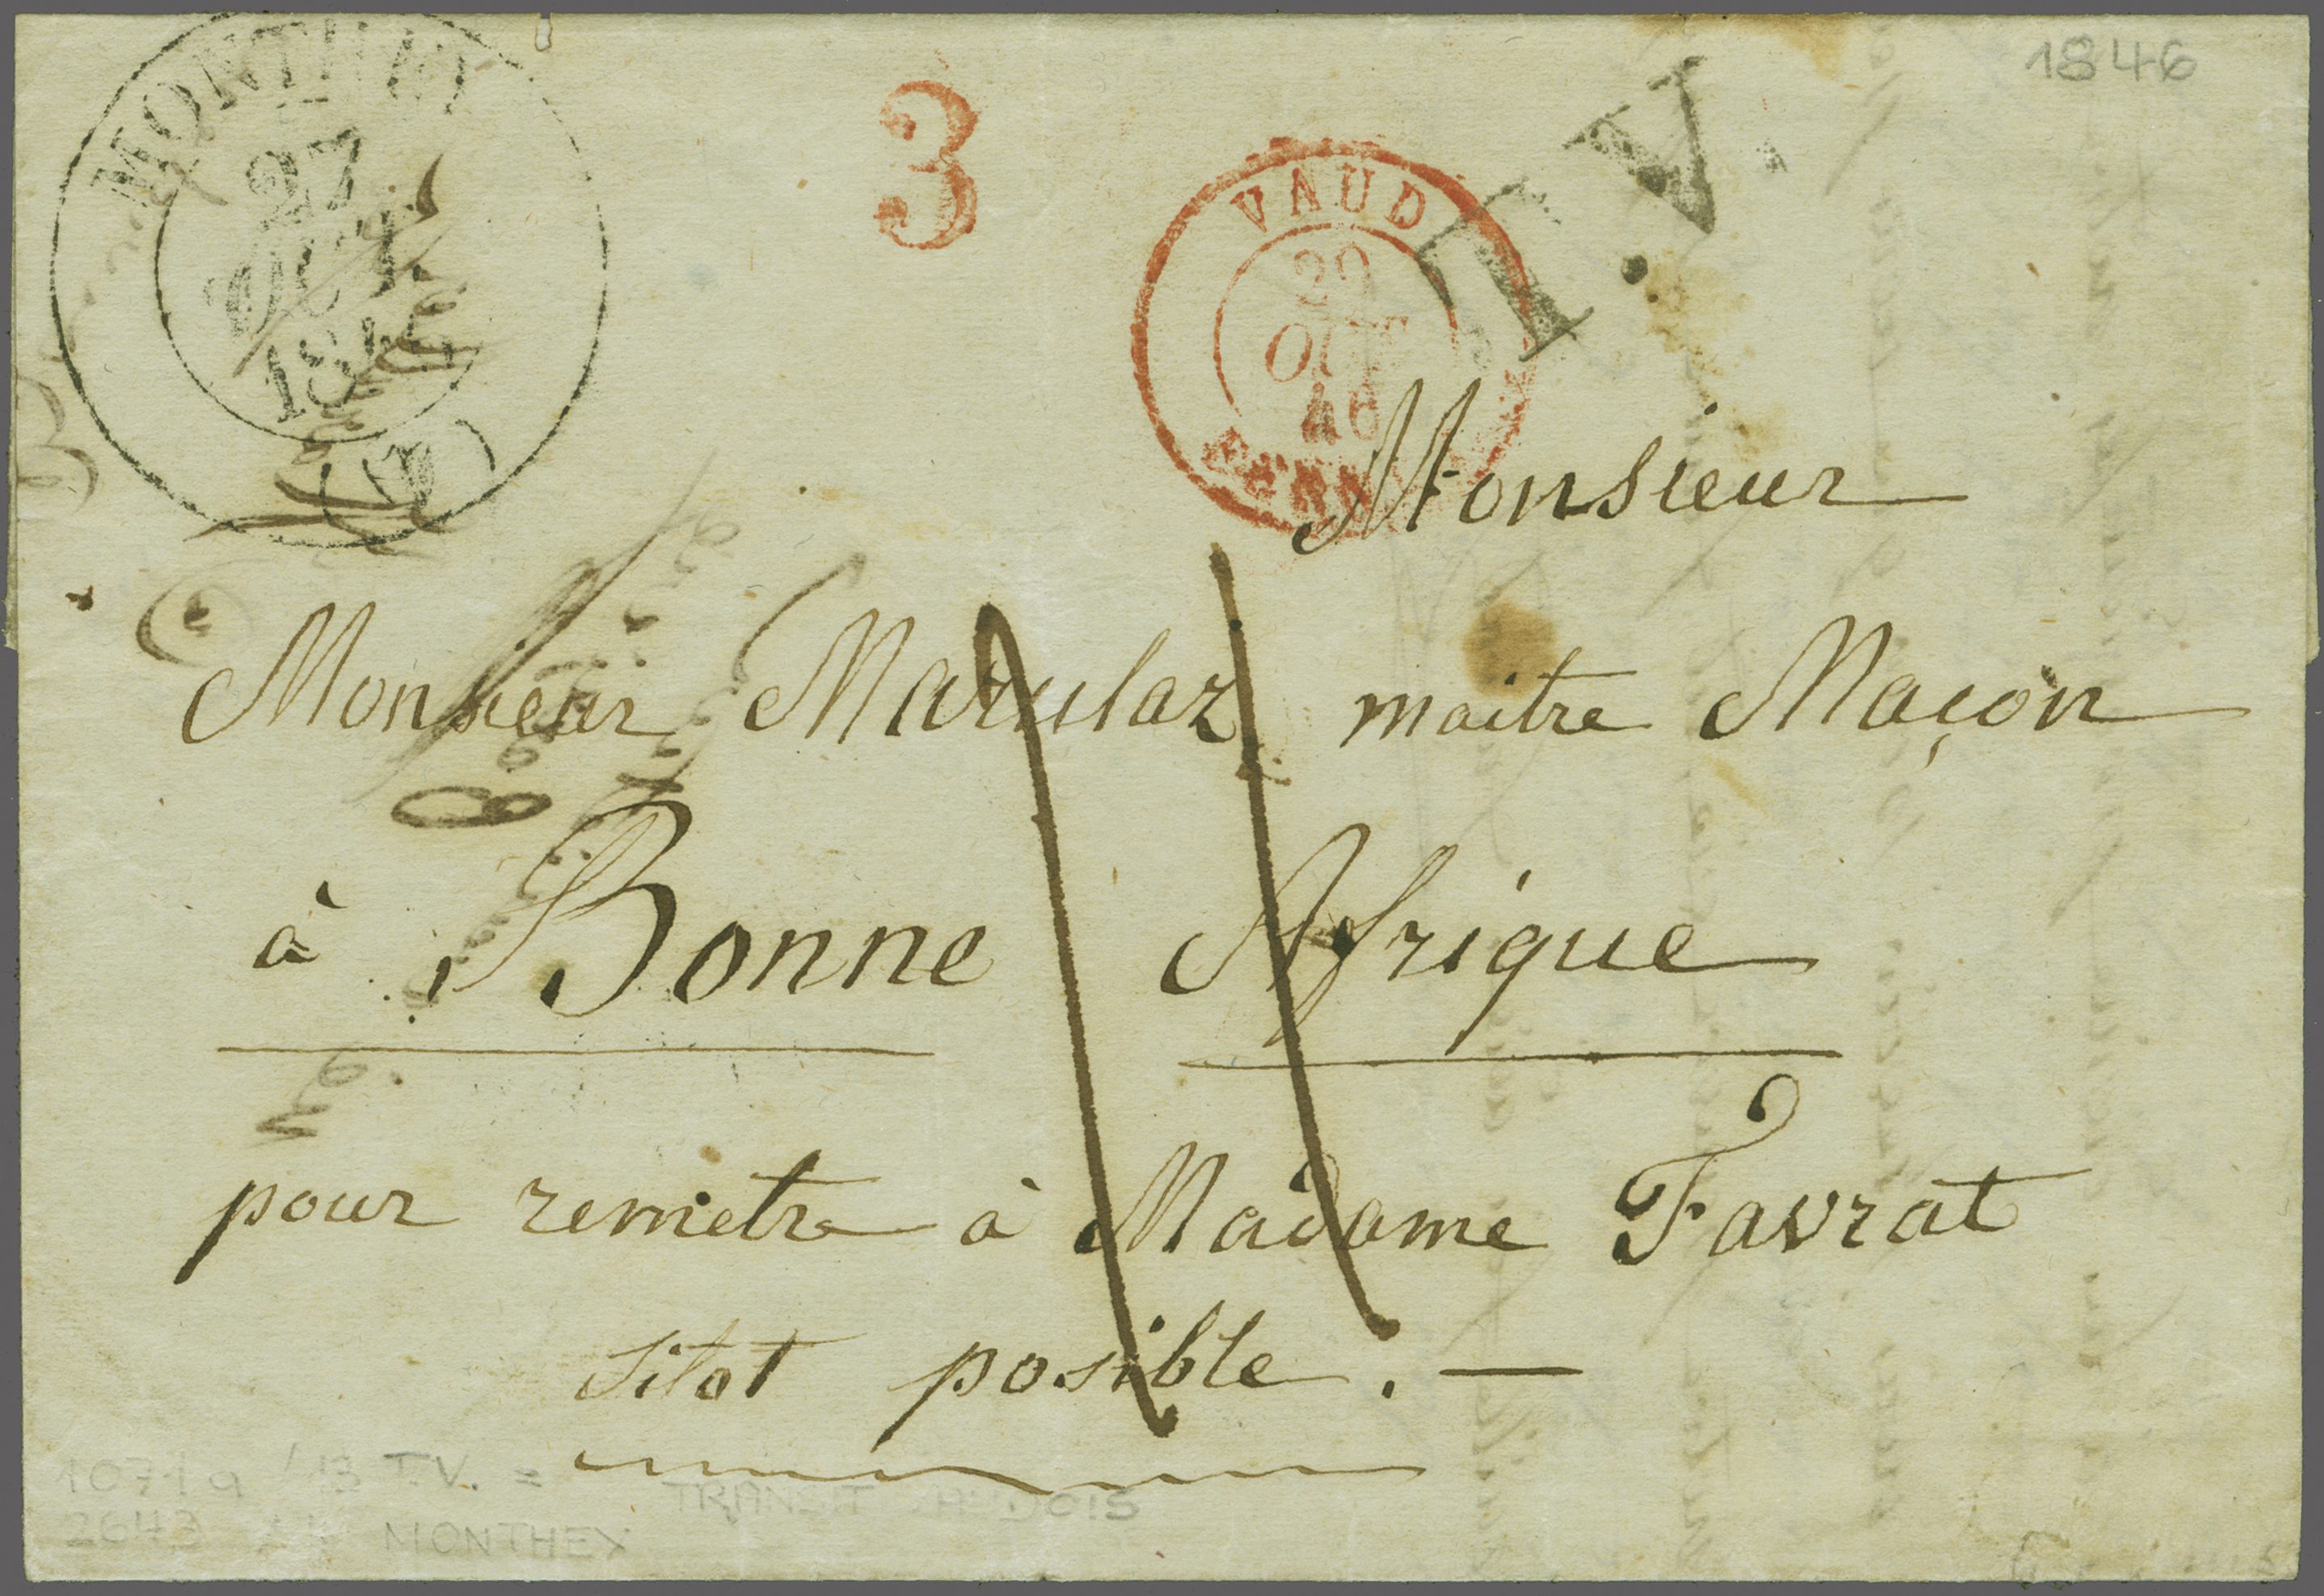 1846
MONTHEY
27
OCT.
1846
3
VAUD
29
OCT
46
FERN
T.V.
Monsieur
Monsieur Marulaz maitre Maçon
à Bonne Afrique
pour remetre à Madame Favrat
sitot posible. —
10719 T.V. =
TRANSIT VAUDOIS
2643 MONTHEY